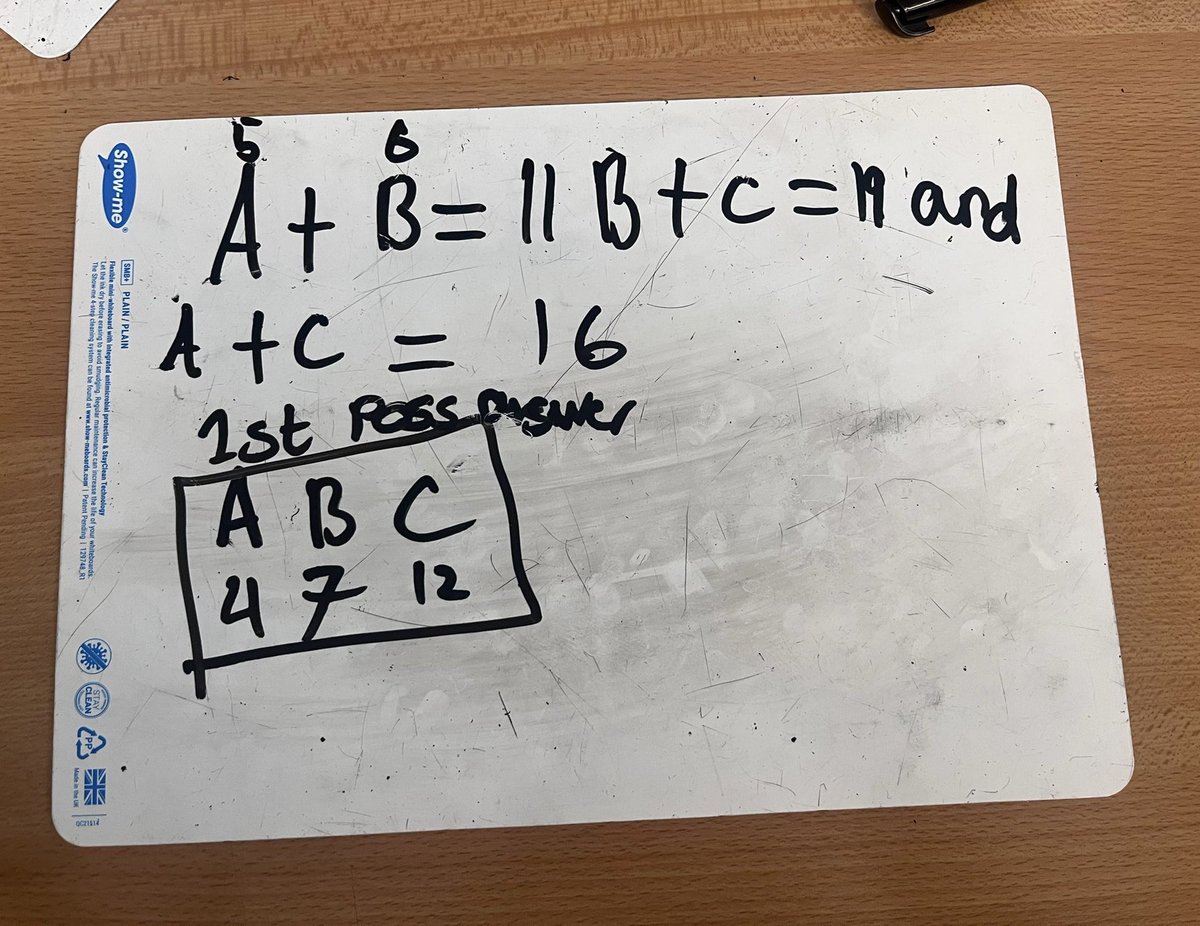 5 6
A + B = 11 B + C = 19 and
A + C = 16
1st Poss Answer
A B C
4 7 12
Show-me
SMB+ PLAIN / PLAIN
Flexible mini-whiteboard with integrated antimicrobial protection & StayClean Technology
Let the ink dry before erasing to avoid smudging. Regular maintenance can increase the life of your whiteboards.
The Show-me 4-step cleaning system can be found at www.show-meboards.com | Patent Pending | 129748_R1
STAY CLEAN
PP
Made in the UK